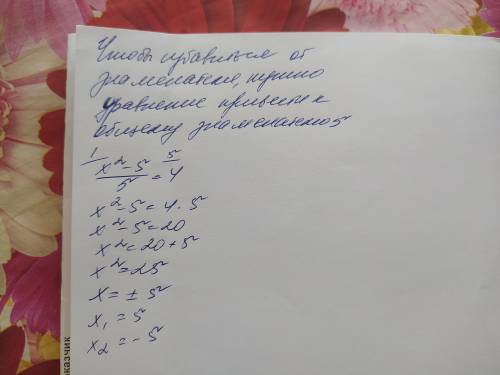 Чтобы избавиться от
знаменателя, нужно
уравнение привести к
общему знаменателю 5
1 5
x²-5/5 = 4
x²-5 = 4·5
x²-5=20
x²=20+5
x²=25
x=±5
x₁=5
x₂=-5